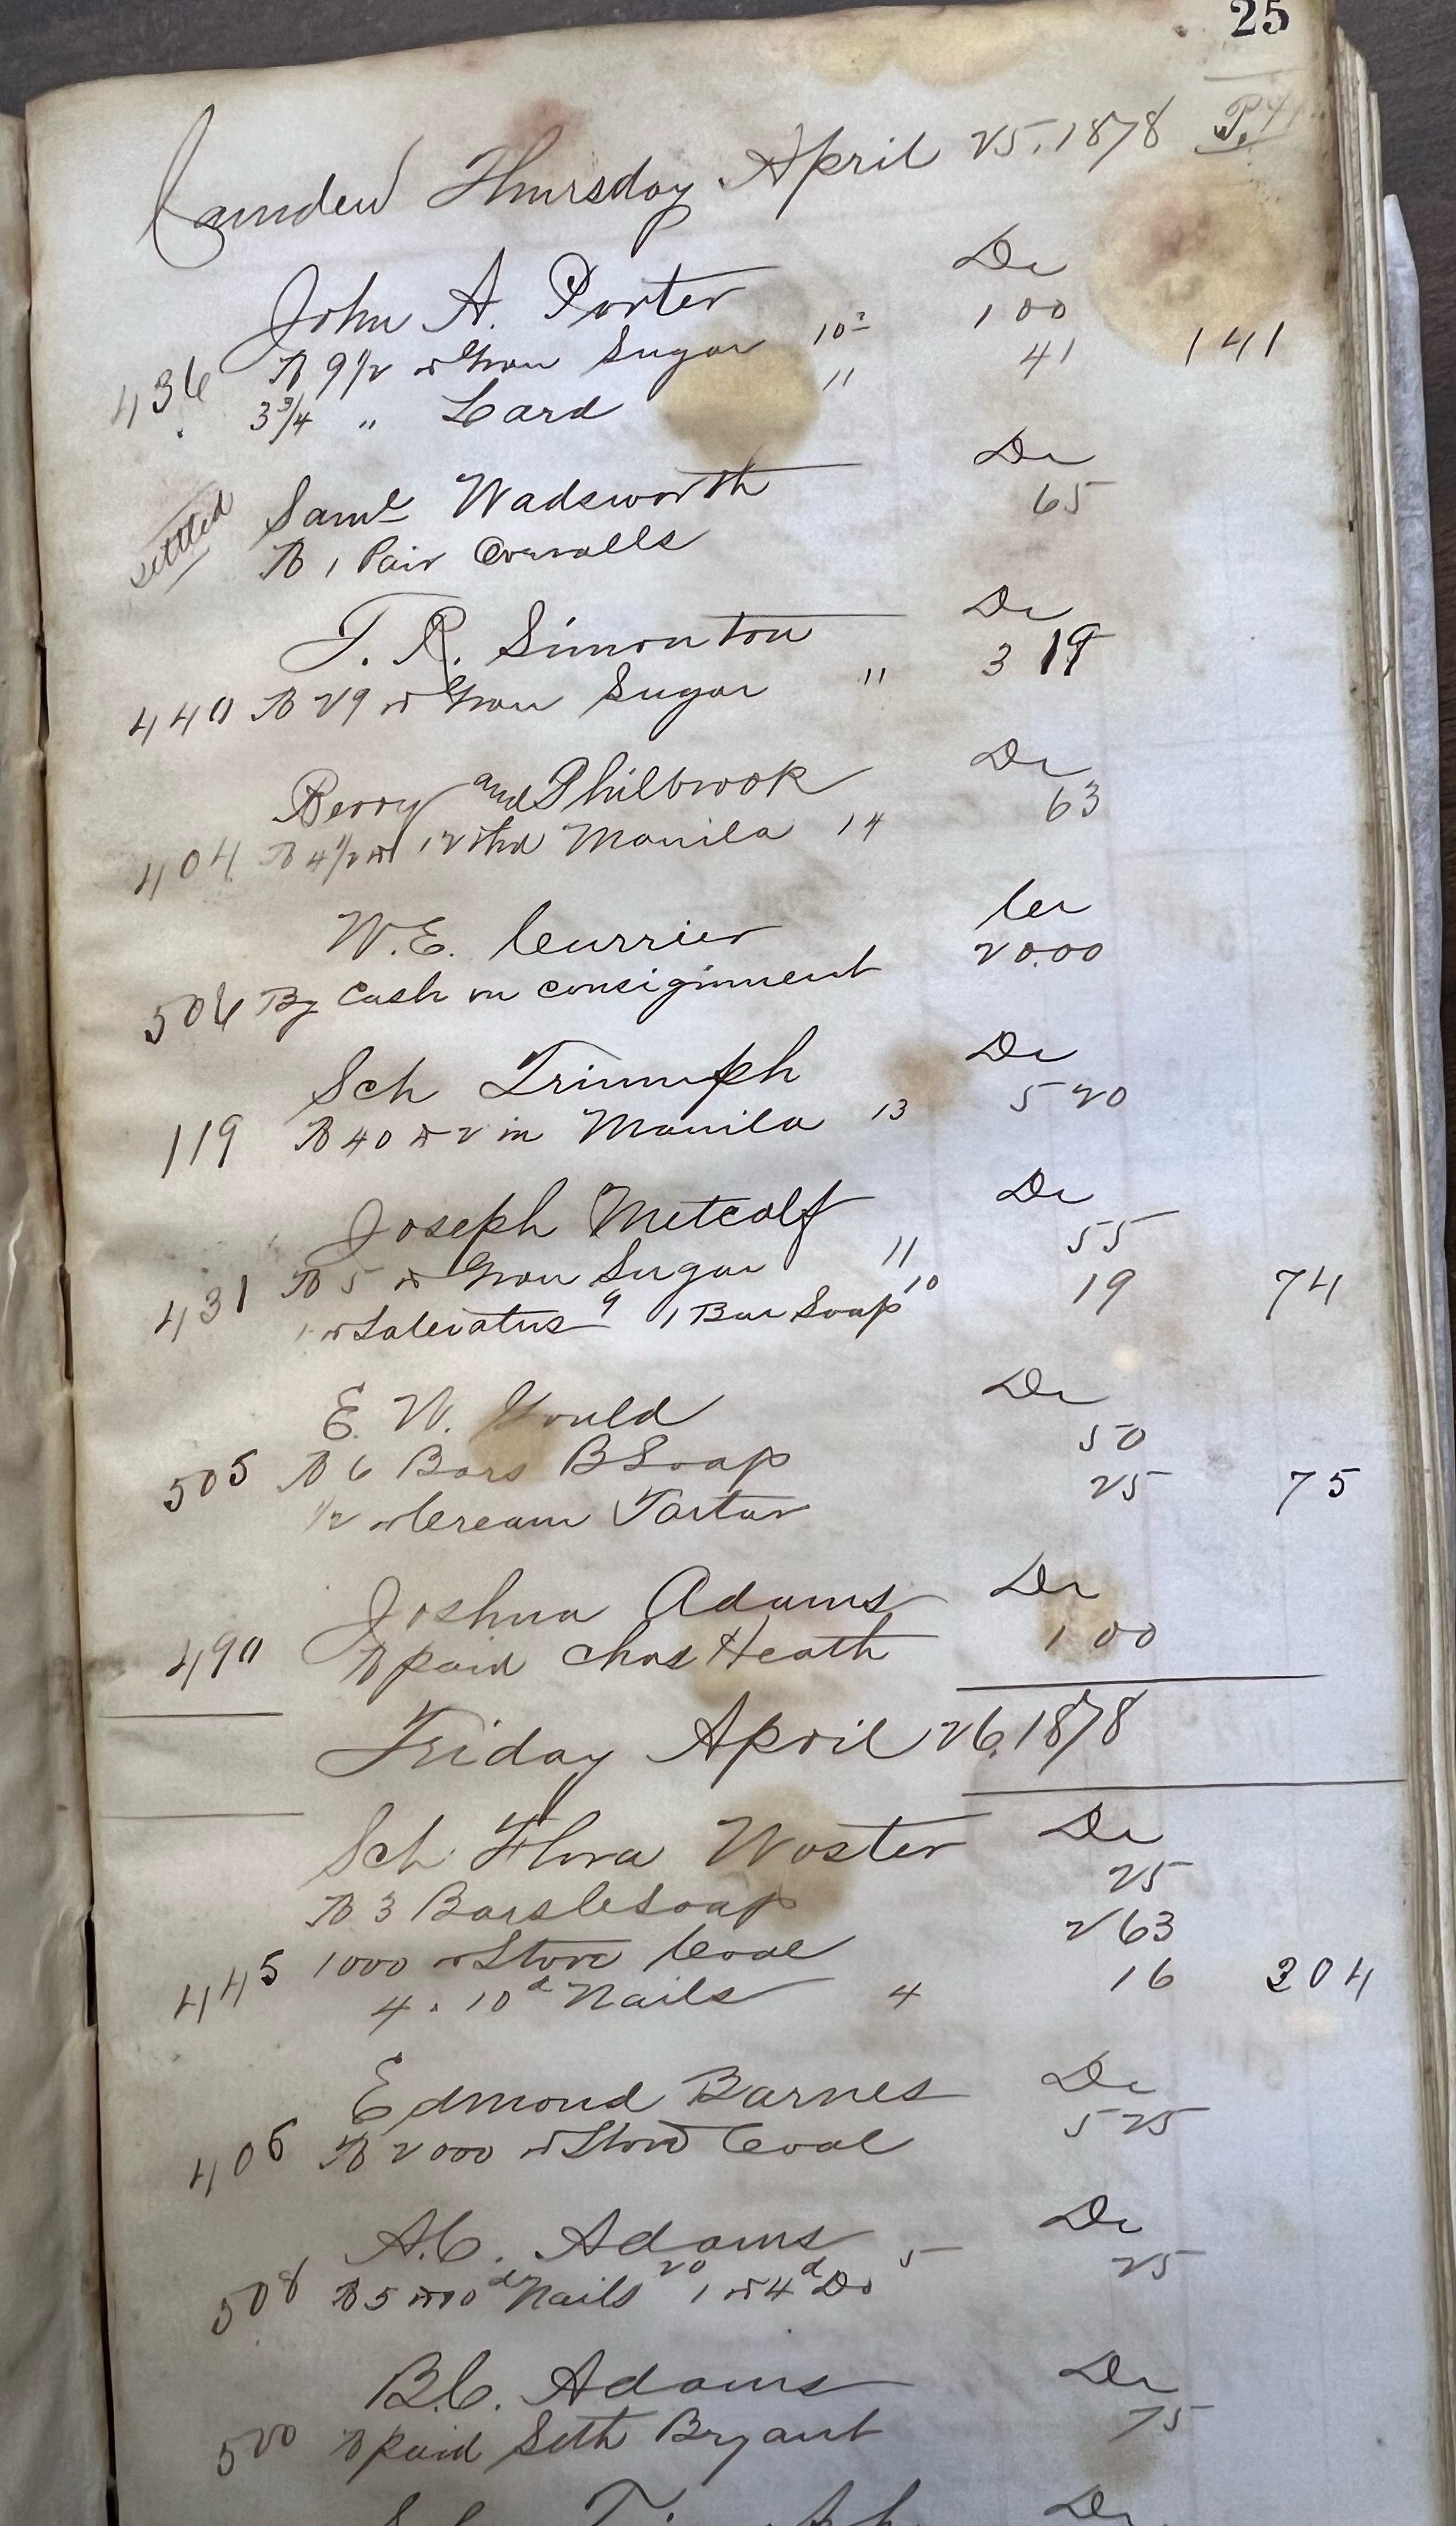 25
Camden Thursday April 25. 1878
John A. Porter Dr
436 To 9 1/2 # Gran Sugar 10 1/2 1 00
3 3/4 " Lard 11 41 1 41
settled Saml Wadsworth Dr
To 1 Pair Overalls 65
T. R. Simonton Dr
440 To 29 # Gran Sugar 11 3 19
Berry and Philbrook Dr
404 To 4 1/2 # 12 thd Manila 14 63
W. E. Currier Cr
506 By Cash on consignment 20.00
Sch Triumph Dr
119 To 40 # 2 in Manila 13 5 20
Joseph Metcalf Dr
431 To 5 # Gran Sugar 11 55
1 # Saleratus 9 1 Bar Soap 10 19 74
E. W. Gould Dr
505 To 6 Bars B Soap 50
1/2 # Cream Tartar 25 75
Joshua Adams Dr
490 To paid Chas Heath 1 00
Friday April 26, 1878
Sch Flora Woster Dr
To 3 Bars Soap 25
445 1000 # Stove Coal 2 63
4 " 10d Nails 4 16 3 04
Edmond Barnes Dr
406 To 2000 # Stove Coal 5 25
A. C. Adams Dr
508 To 5 # 10d Nails 20 1 # 4d Do 5 25
B. C. Adams Dr
520 To paid Seth Bryant 75
Dr